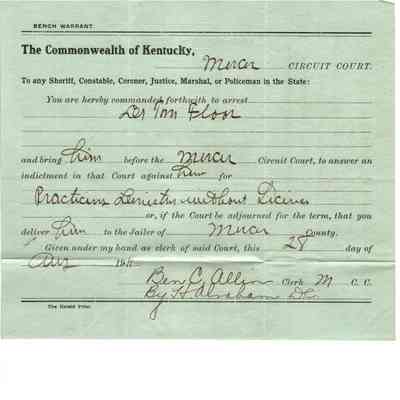 BENCH WARRANT.
The Commonwealth of Kentucky,
Mercer CIRCUIT COURT.
To any Sheriff, Constable, Coroner, Justice, Marshal, or Policeman in the State:
You are hereby commanded forthwith to arrest
Tom Floor
and bring him before the Mercer Circuit Court, to answer an
indictment in that Court against him for
Practicing without
or, if the Court be adjourned for the term, that you
deliver him to the Jailer of Mercer County.
Given under my hand as clerk of said Court, this 28 day of
Ben C. Allin Clerk M C. C.
By H
The Herald Print.